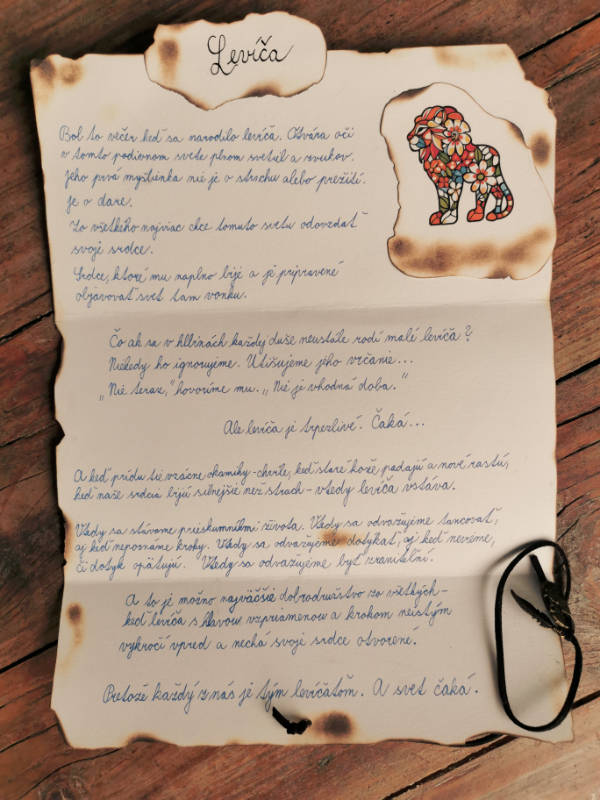 Levíča
Bol to večer keď sa narodilo levíča. Otvára oči
v tomto podivnom svete plnom svetiel a zvukov.
Jeho prvá myšlienka nie je o strachu alebo prežití.
Je o dare.
Zo všetkého najviac chce tomuto svetu odovzdať
svoje srdce.
Srdce, ktoré mu naplno bije a je pripravené
objavovať svet tam vonku.
Čo ak sa v hlbinách každej duše neustále rodí malé levíča?
Niekedy ho ignorujeme. Utišujeme jeho vrčanie...
„Nie teraz," hovoríme mu. „Nie je vhodná doba."
Ale levíča je trpezlivé. Čaká...
A keď prídu tie vzácne okamihy - chvíle, keď staré kože padajú a nové rastú,
keď naše srdcia bijú silnejšie než strach - vtedy levíča vstáva.
Vtedy sa stávame prieskumníkmi života. Vtedy sa odvažujeme tancovať,
aj keď nepoznáme kroky. Vtedy sa odvažujeme dotýkať, aj keď nevieme,
či dotyk opätujú. Vtedy sa odvažujeme byť zraniteľní.
A to je možno najväčšie dobrodružstvo zo všetkých -
keď levíča s hlavou vzpriamenou a krokom neistým
vykročí vpred a nechá svoje srdce otvorené.
Pretože každý z nás je tým levíčaťom. A svet čaká.